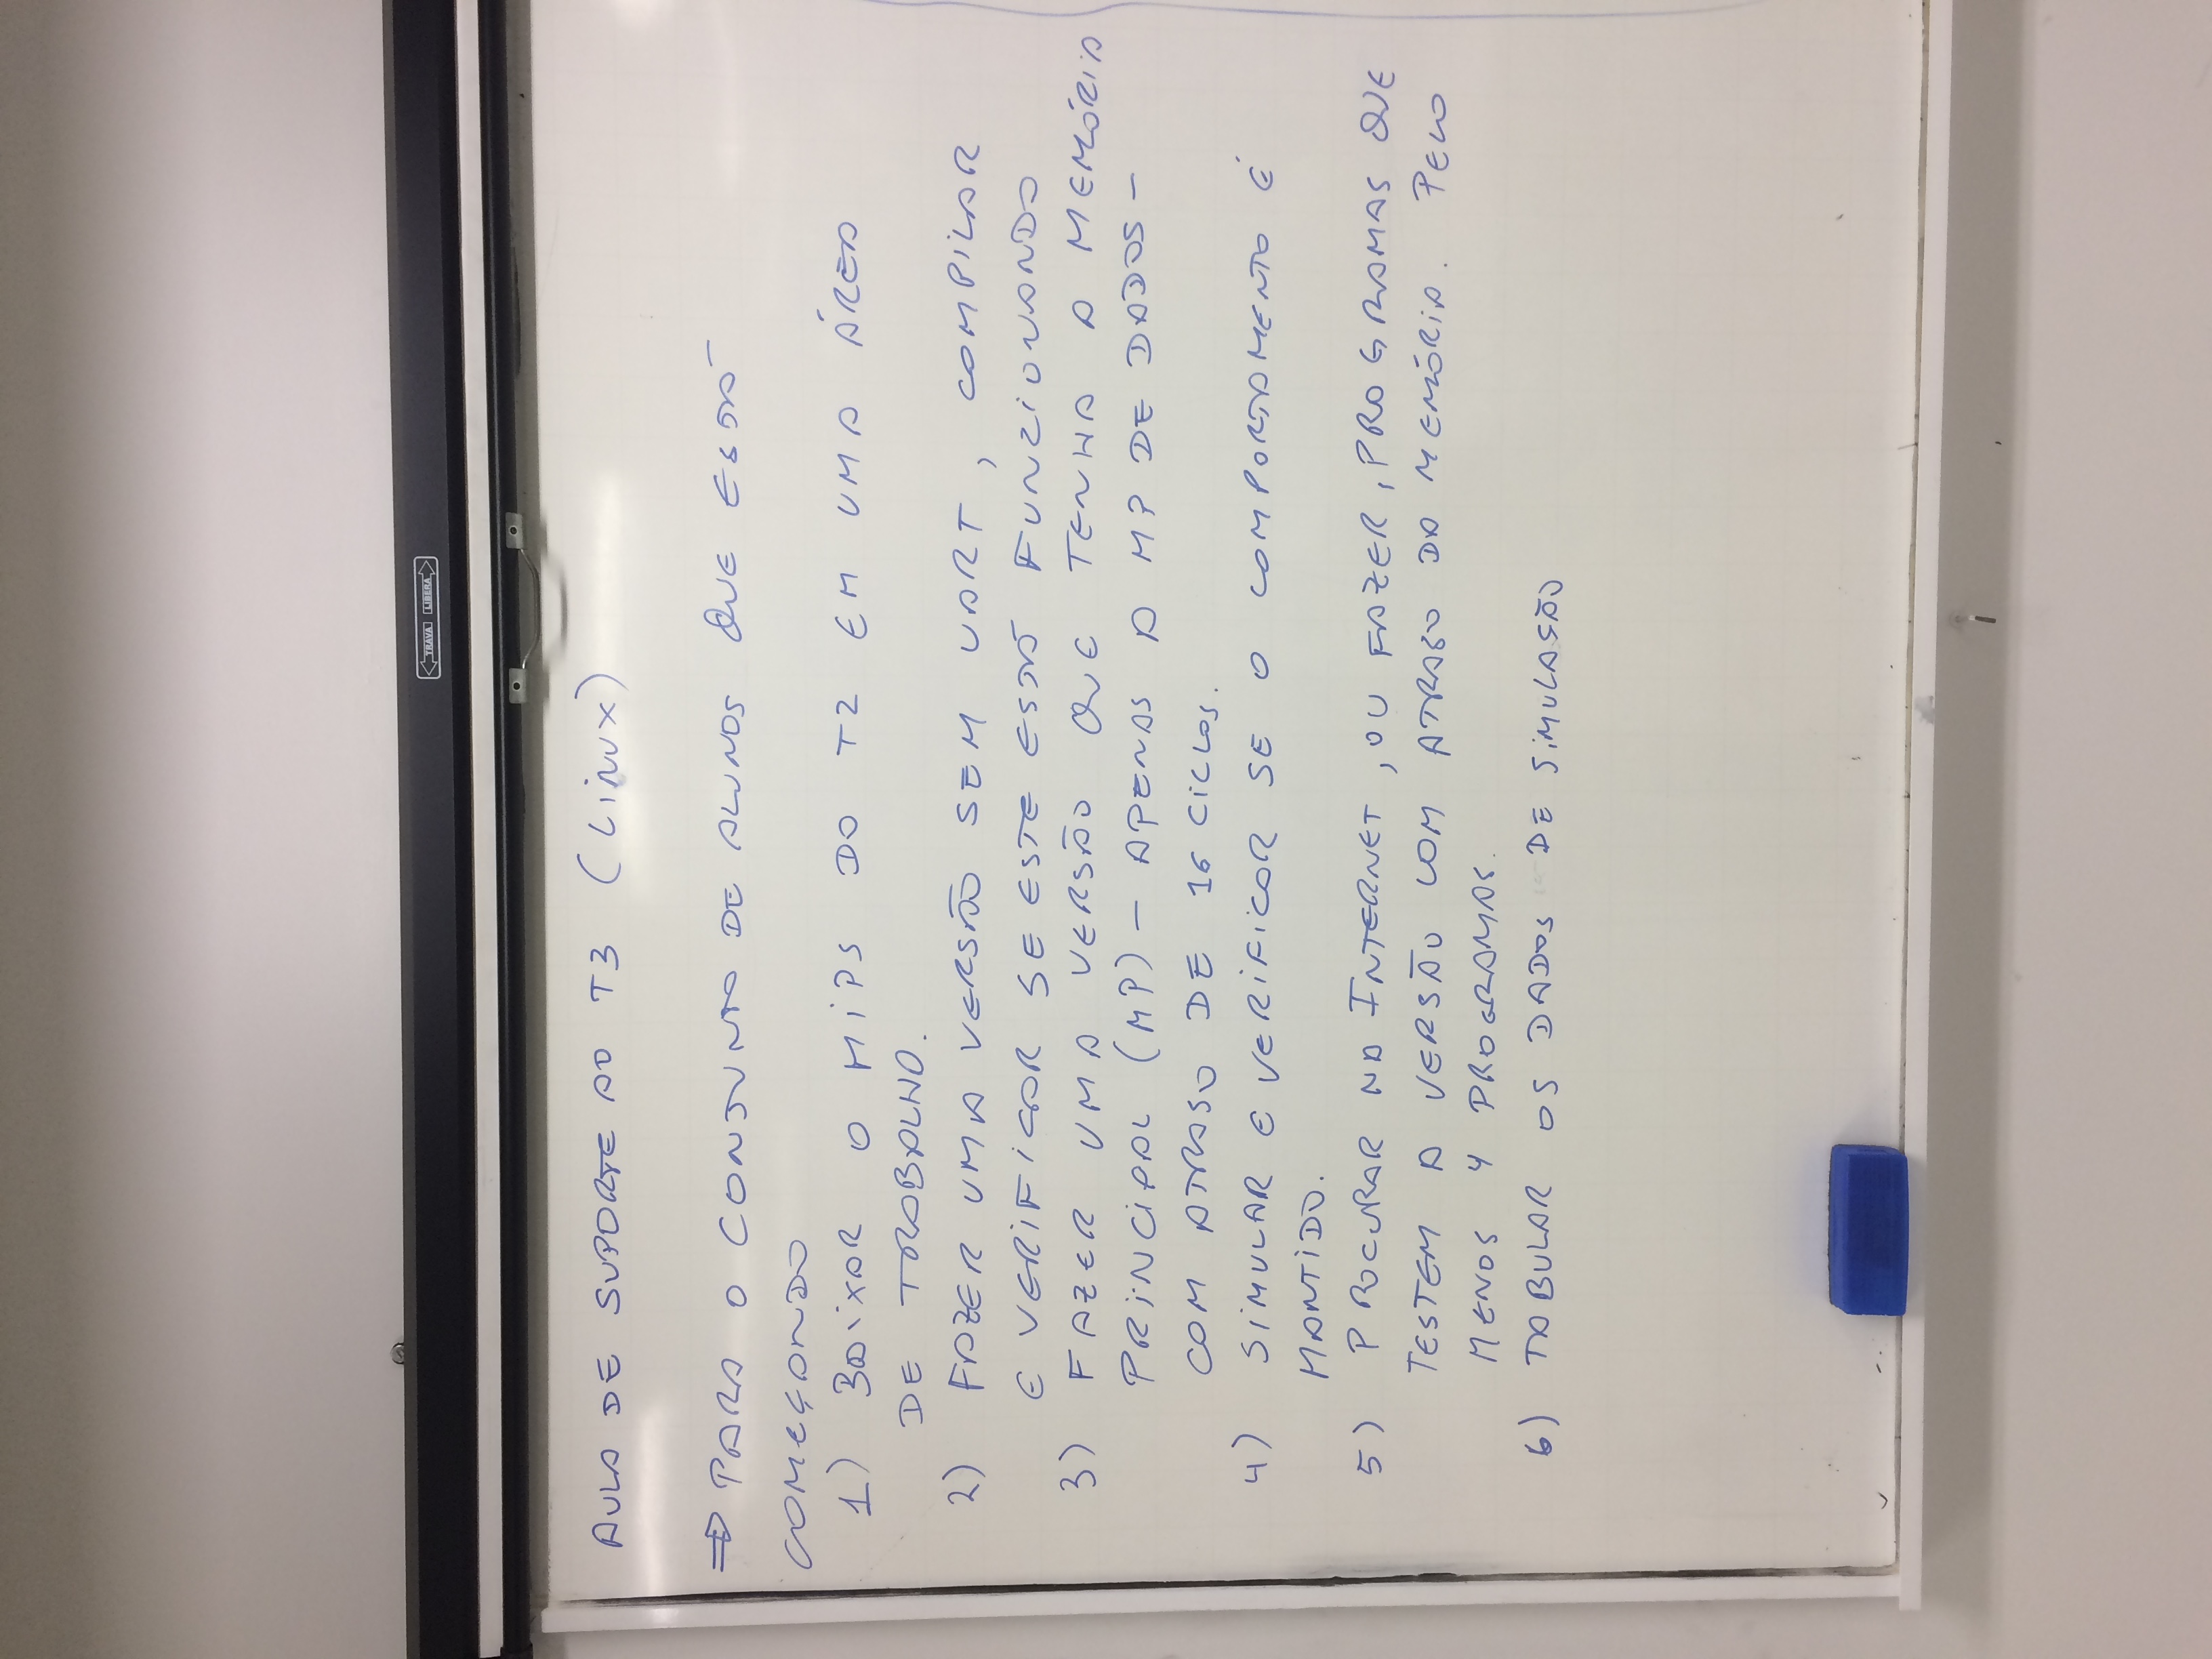 TRAVA LIBERA
AULA DE SUPORTE AO T3 (LINUX)
⇒ PARA O CONJUNTO DE ALUNOS QUE ESTÁ
COMEÇANDO
1) BAIXAR O MIPS DO T2 EM UMA ÁREA
DE TRABALHO.
2) FAZER UMA VERSÃO SEM UART, COMPILAR
E VERIFICAR SE ESTE ESTÁ FUNZIONANDO
3) FAZER UMA VERSÃO QUE TENHA A MEMÓRIA
PRINCIPAL (MP) – APENAS A MP DE DADOS –
COM ATRASO DE 16 CICLOS.
4) SIMULAR E VERIFICAR SE O COMPORTAMENTO É
MANTIDO.
5) PROCURAR NA INTERNET, OU FAZER, PROGRAMAS QUE
TESTEM A VERSÃO COM ATRASO DA MEMÓRIA. PELO
MENOS 4 PROGRAMAS.
6) TABULAR OS DADOS DE SIMULAÇÃO